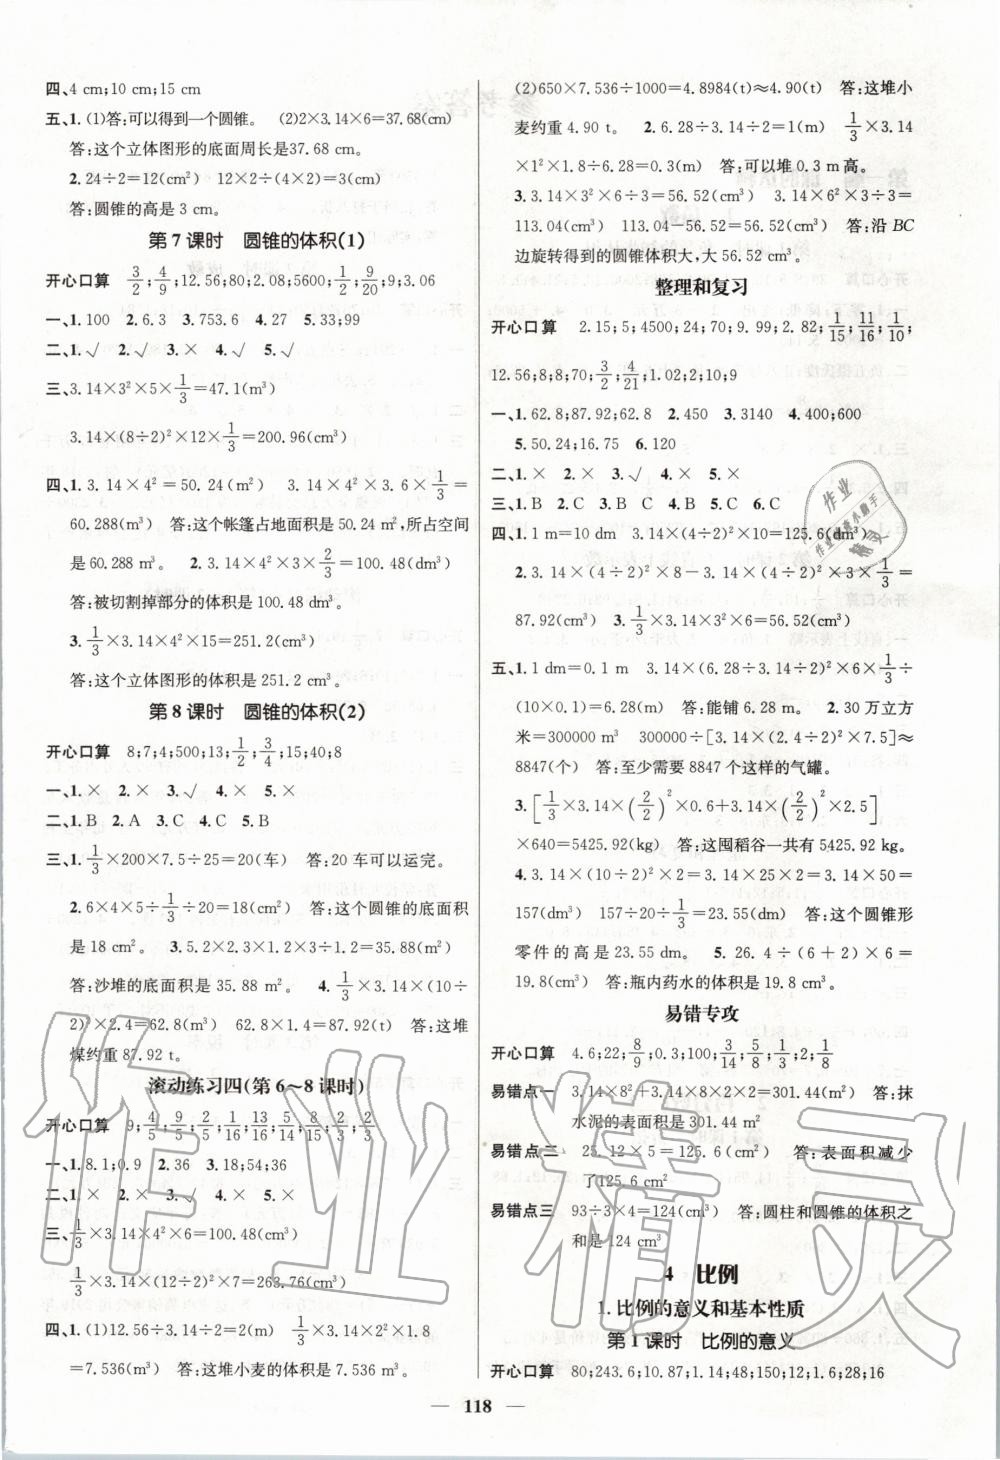 四、4 cm;10 cm;15 cm
五、1. (1)答:可以得到一个圆锥。 (2)2×3.14×6=37.68(cm)
答:这个立体图形的底面周长是37.68 cm。
2. 24÷2=12(cm²) 12×2÷(4×2)=3(cm)
答:圆锥的高是 3 cm。
第 7 课时 圆锥的体积(1)
开心口算 3/2;4/9;12.56;80;2.08;5600;1/2;9/20;9;3.06
一、1. 100 2. 6.3 3. 753.6 4. 27 5. 33;99
二、1. √ 2. √ 3. × 4. × 5. √
三、3.14×3²×5×1/3=47.1(m³)
3.14×(8÷2)²×12×1/3=200.96(cm³)
四、1. 3.14×4²=50.24(m²) 3.14×4²×3.6×1/3=
60.288(m³) 答:这个帐篷占地面积是 50.24 m²,所占空间
是 60.288 m³。 2. 3.14×4²×3×2/3=100.48(dm³)
答:被切割掉部分的体积是 100.48 dm³。
3. 1/3×3.14×4²×15=251.2(cm³)
答:这个立体图形的体积是 251.2 cm³。
第 8 课时 圆锥的体积(2)
开心口算 8;7;4;500;13;1/2;3/4;15;40;8
一、1. × 2. × 3. √ 4. × 5. ×
二、1. B 2. A 3. C 4. C 5. B
三、1. 1/3×200×7.5÷25=20(车) 答:20 车可以运完。
2. 6×4×5÷1/3÷20=18(cm²) 答:这个圆锥的底面积
是 18 cm²。 3. 5.2×2.3×1.2×3÷1.2=35.88(m²)
答:沙堆的底面积是 35.88 m²。 4. 1/3×3.14×(10÷
2)²×2.4=62.8(m³) 62.8×1.4=87.92(t) 答:这堆
煤约重 87.92 t。
滚动练习四(第 6～8 课时)
开心口算 9;4/5;9/5;2/5;1/16;13/16;14/15;5/8;2/9;2/3;2/3
一、1. 8.1;0.9 2. 36 3. 18;54;36
二、1. × 2. × 3. √ 4. × 5. ×
三、1/3×3.14×4²×6=100.48(cm³)
1/3×3.14×(12÷2)²×7=263.76(cm³)
四、1. (1)12.56÷3.14÷2=2(m) 1/3×3.14×2²×1.8
=7.536(m³) 答:这堆小麦的体积是 7.536 m³。
(2)650×7.536÷1000=4.8984(t)≈4.90(t) 答:这堆小
麦约重 4.90 t。 2. 6.28÷3.14÷2=1(m) 1/3×3.14
×1²×1.8÷6.28=0.3(m) 答:可以堆 0.3 m高。
3. 3.14×3²×6×1/3=56.52(cm³) 3.14×6²×3×1/3=
113.04(cm³) 113.04-56.52=56.52(cm³) 答:沿 BC
边旋转得到的圆锥体积大,大 56.52 cm³。
整理和复习
开心口算 2.15;5;4500;24;70;9.99;2.82;1/15;11/16;1/10;
12.56;8;8;70;3/2;4/21;1.02;2;10;9
一、1. 62.8;87.92;62.8 2. 450 3. 3140 4. 400;600
5. 50.24;16.75 6. 120
二、1. × 2. × 3. √ 4. × 5. ×
三、1. B 2. C 3. C 4. B 5. C 6. C
四、1. 1 m=10 dm 3.14×2²×10=125.6(dm³)
2. 3.14×(4÷2)²×8-3.14×(4÷2)²×3×1/3=
87.92(cm³) 3. 3.14×3²×(4+6)÷2=141.3(cm³)
五、1. 1 dm=0.1 m 3.14×(6.28÷3.14÷2)²×6×1/3÷
(10×0.1)=6.28(m) 答:能铺 6.28 m。 2. 30 万立方
米=300000 m³ 300000÷[3.14×(2.4÷2)²×7.5]≈
8847(个) 答:至少需要 8847 个这样的气罐。
3. [1/3×3.14×(2/2)²×0.6+3.14×(2/2)²×2.5]
×640=5425.92(kg) 答:这囤稻谷一共有 5425.92 kg。
4. 3.14×(10÷2)²×2=3.14×25×2=3.14×50=
157(dm³) 157÷20÷1/3=23.55(dm) 答:这个圆锥形
零件的高是 23.55 dm。 5. 26.4÷(6+2)×6=
19.8(cm³) 答:瓶内药水的体积是 19.8 cm³。
易错专攻
开心口算 4.6;22;8/9;0.3;100;3/14;5/8;1/2;2;1/8
易错点一 3.14×8²+3.14×8×2×2=301.44(m²) 答:抹
水泥的表面积是 301.44 m²
易错点二 25.12×5=125.6(cm²) 答:表面积减少
了125.6 cm²
易错点三 93÷3×4=124(cm³) 答:圆柱和圆锥的体积之
和是 124 cm³
4 比例
1. 比例的意义和基本性质
第 1 课时 比例的意义
开心口算 80;243.6;10.87;1.14;48;150;12;1.6;28;16
118
作业精灵
作业 精灵
作业检查小助手